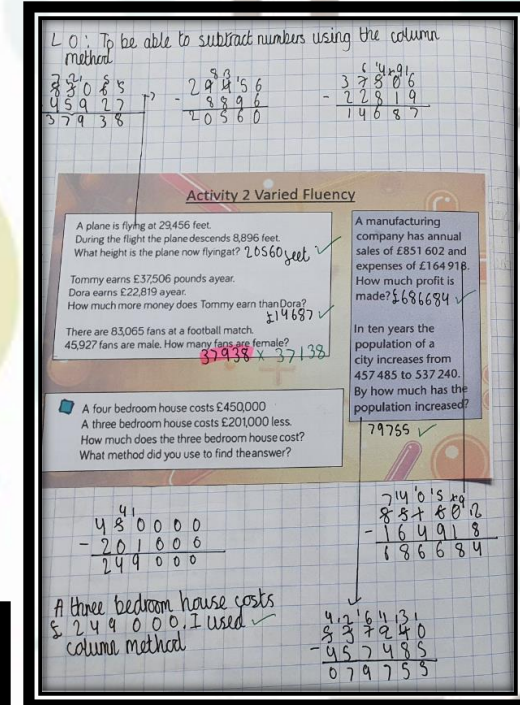 L O : To be able to subtract numbers using the column
method
83065
45927
37938
29456
- 8896
20560
37506
- 22819
14687
Activity 2 Varied Fluency
A plane is flying at 29,456 feet.
During the flight the plane descends 8,896 feet.
What height is the plane now flyingat? 20560 feet ✓
Tommy earns £37,506 pounds ayear.
Dora earns £22,819 ayear.
How much more money does Tommy earn thanDora?
£14687 ✓
There are 83,065 fans at a football match.
45,927 fans are male. How many fans are female?
37938 x 37138
A four bedroom house costs £450,000
A three bedroom house costs £201,000 less.
How much does the three bedroom house cost?
What method did you use to find theanswer?
A manufacturing
company has annual
sales of £851 602 and
expenses of £164 918.
How much profit is
made? £686684 ✓
In ten years the
population of a
city increases from
457 485 to 537 240.
By how much has the
population increased?
79755 ✓
450000
- 201000
249000
A three bedroom house costs
£ 249 000. I used ✓
column method
851602
- 164918
686684
537240
- 457485
079755